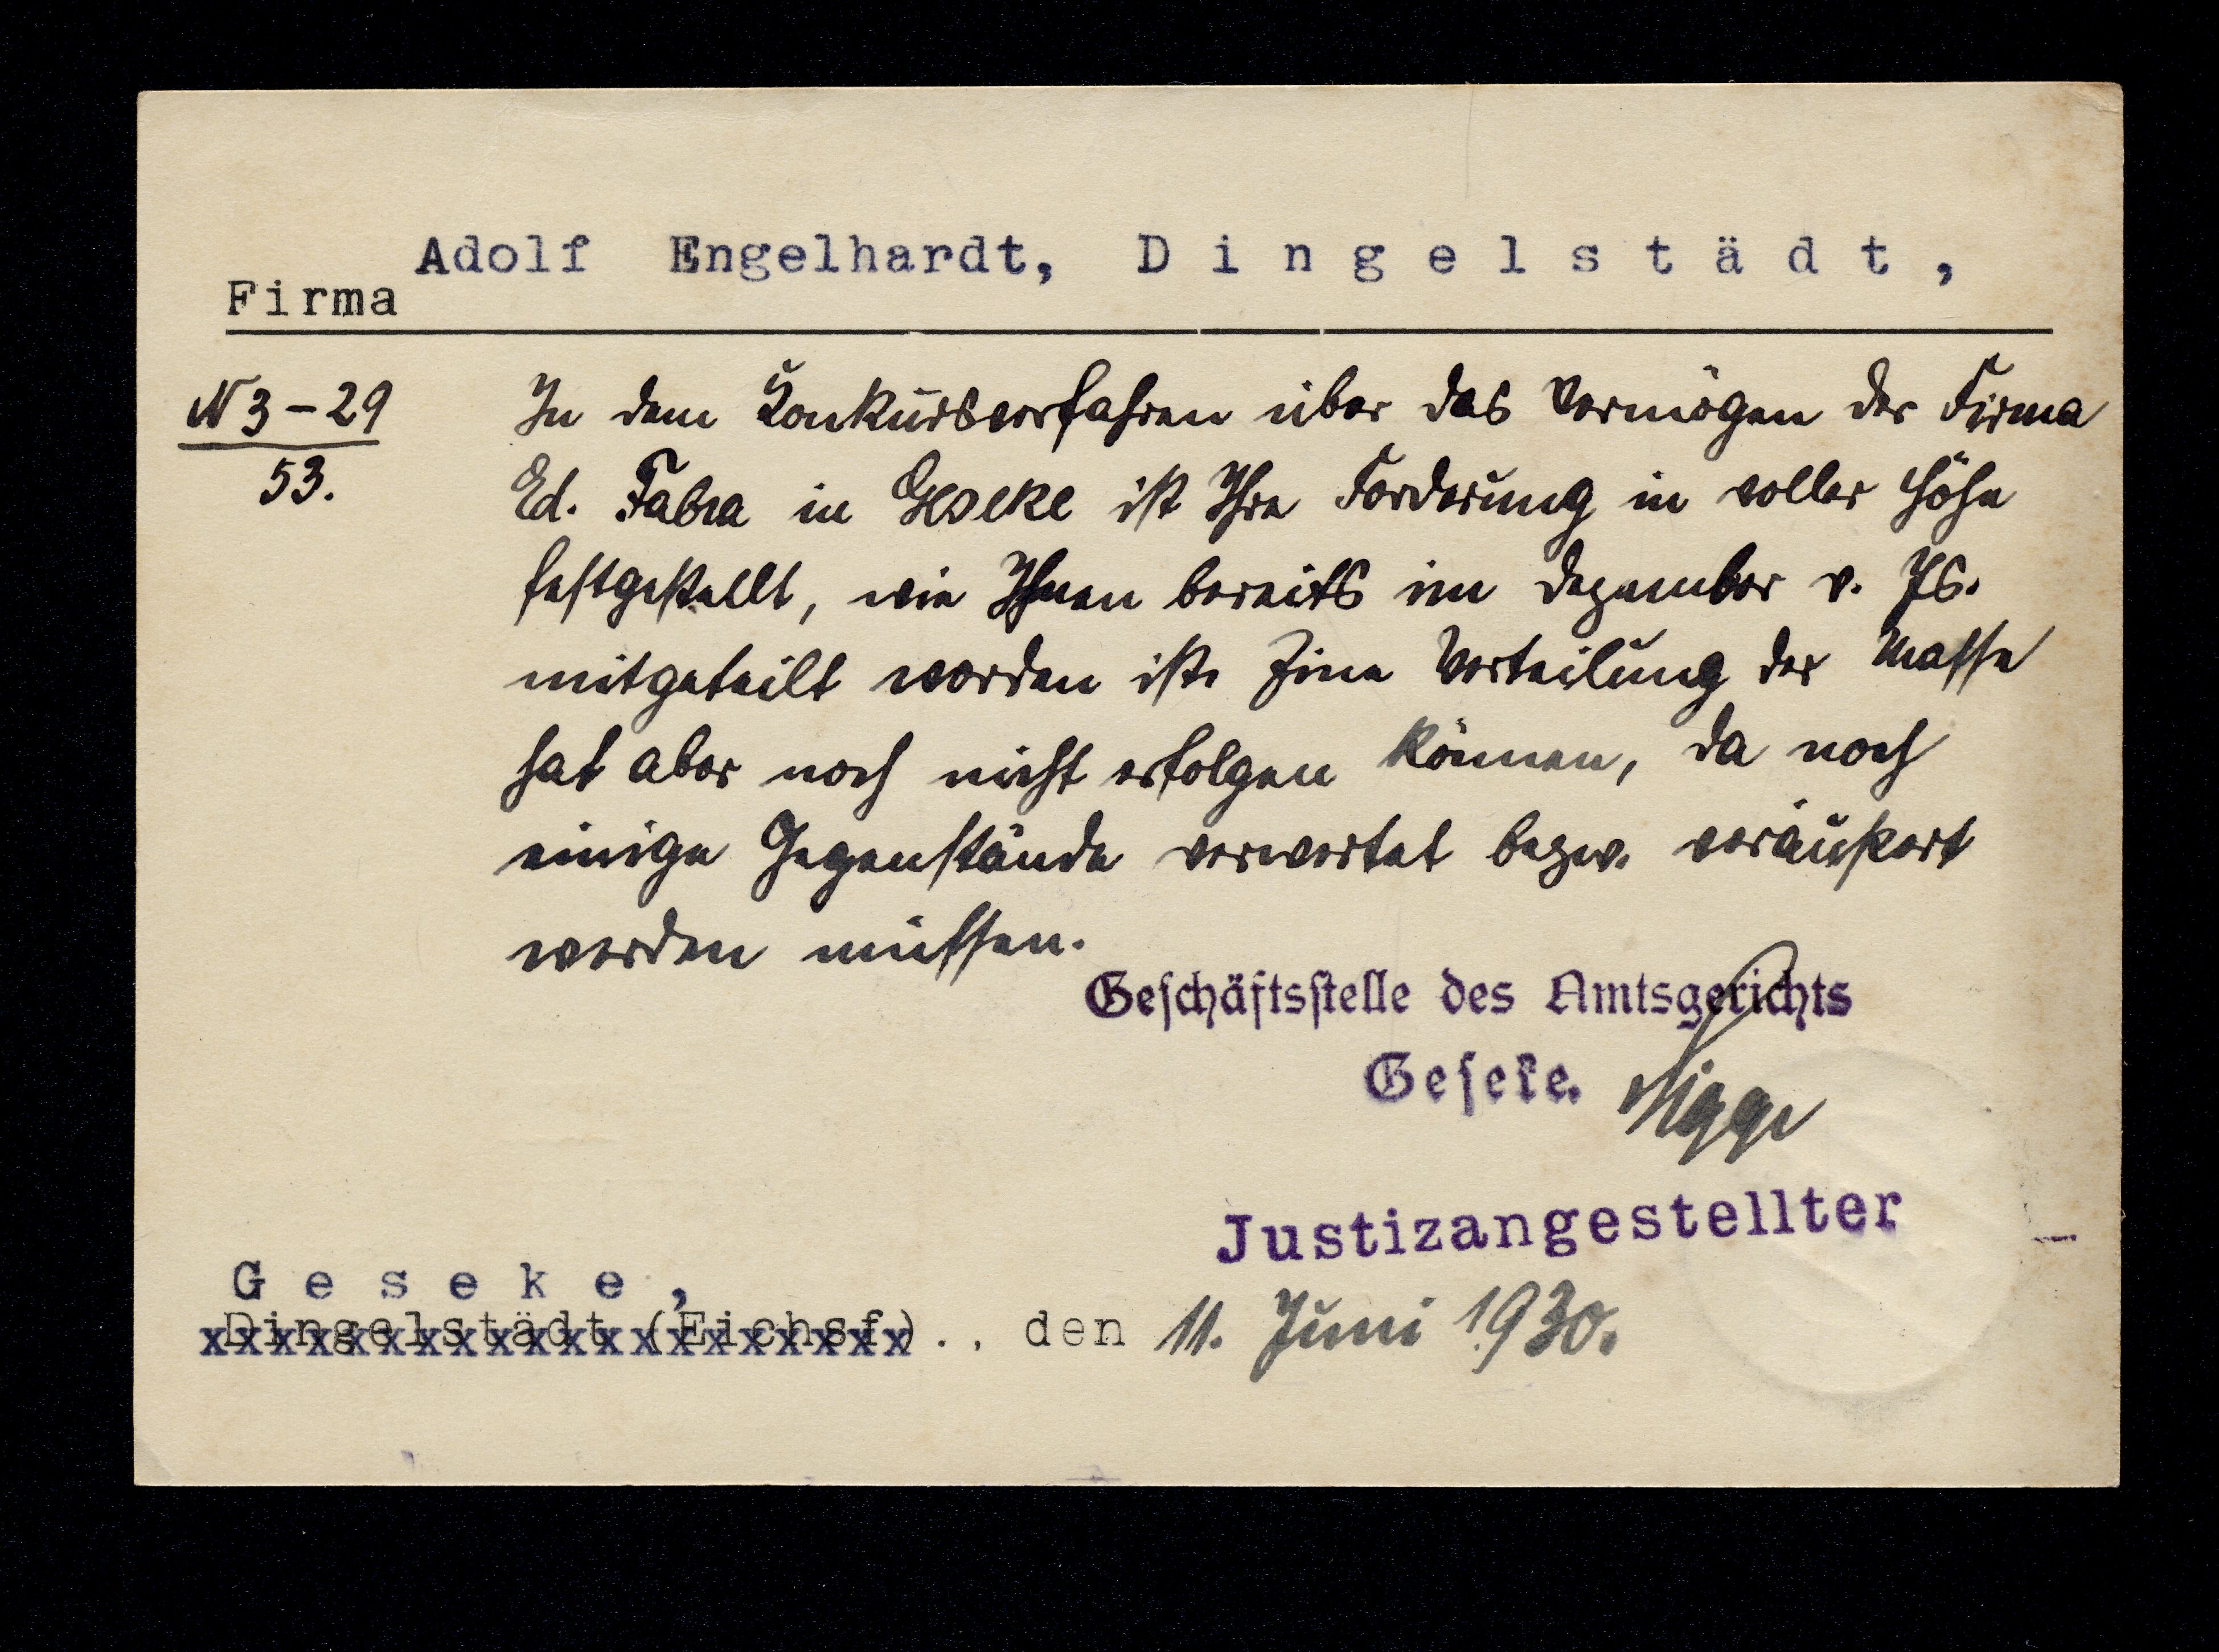 Adolf Engelhardt, Dingelstädt,
Firma
N 3-29
53.
In dem Konkursverfahren über das Vermögen der Firma
Ed. Fabra in Geseke ist Ihre Forderung in voller Höhe
festgestellt, wie Ihnen bereits im Dezember v. Js.
mitgeteilt worden ist. Eine Verteilung der Masse
hat aber noch nicht erfolgen können, da noch
einige Gegenstände verwertet bezw. veräußert
werden müssen.
Geschäftsstelle des Amtsgerichts
Geseke.
Nigge
Justizangestellter
Geseke,
Dingelstädt (Eichsf)., den 11. Juni 1930.